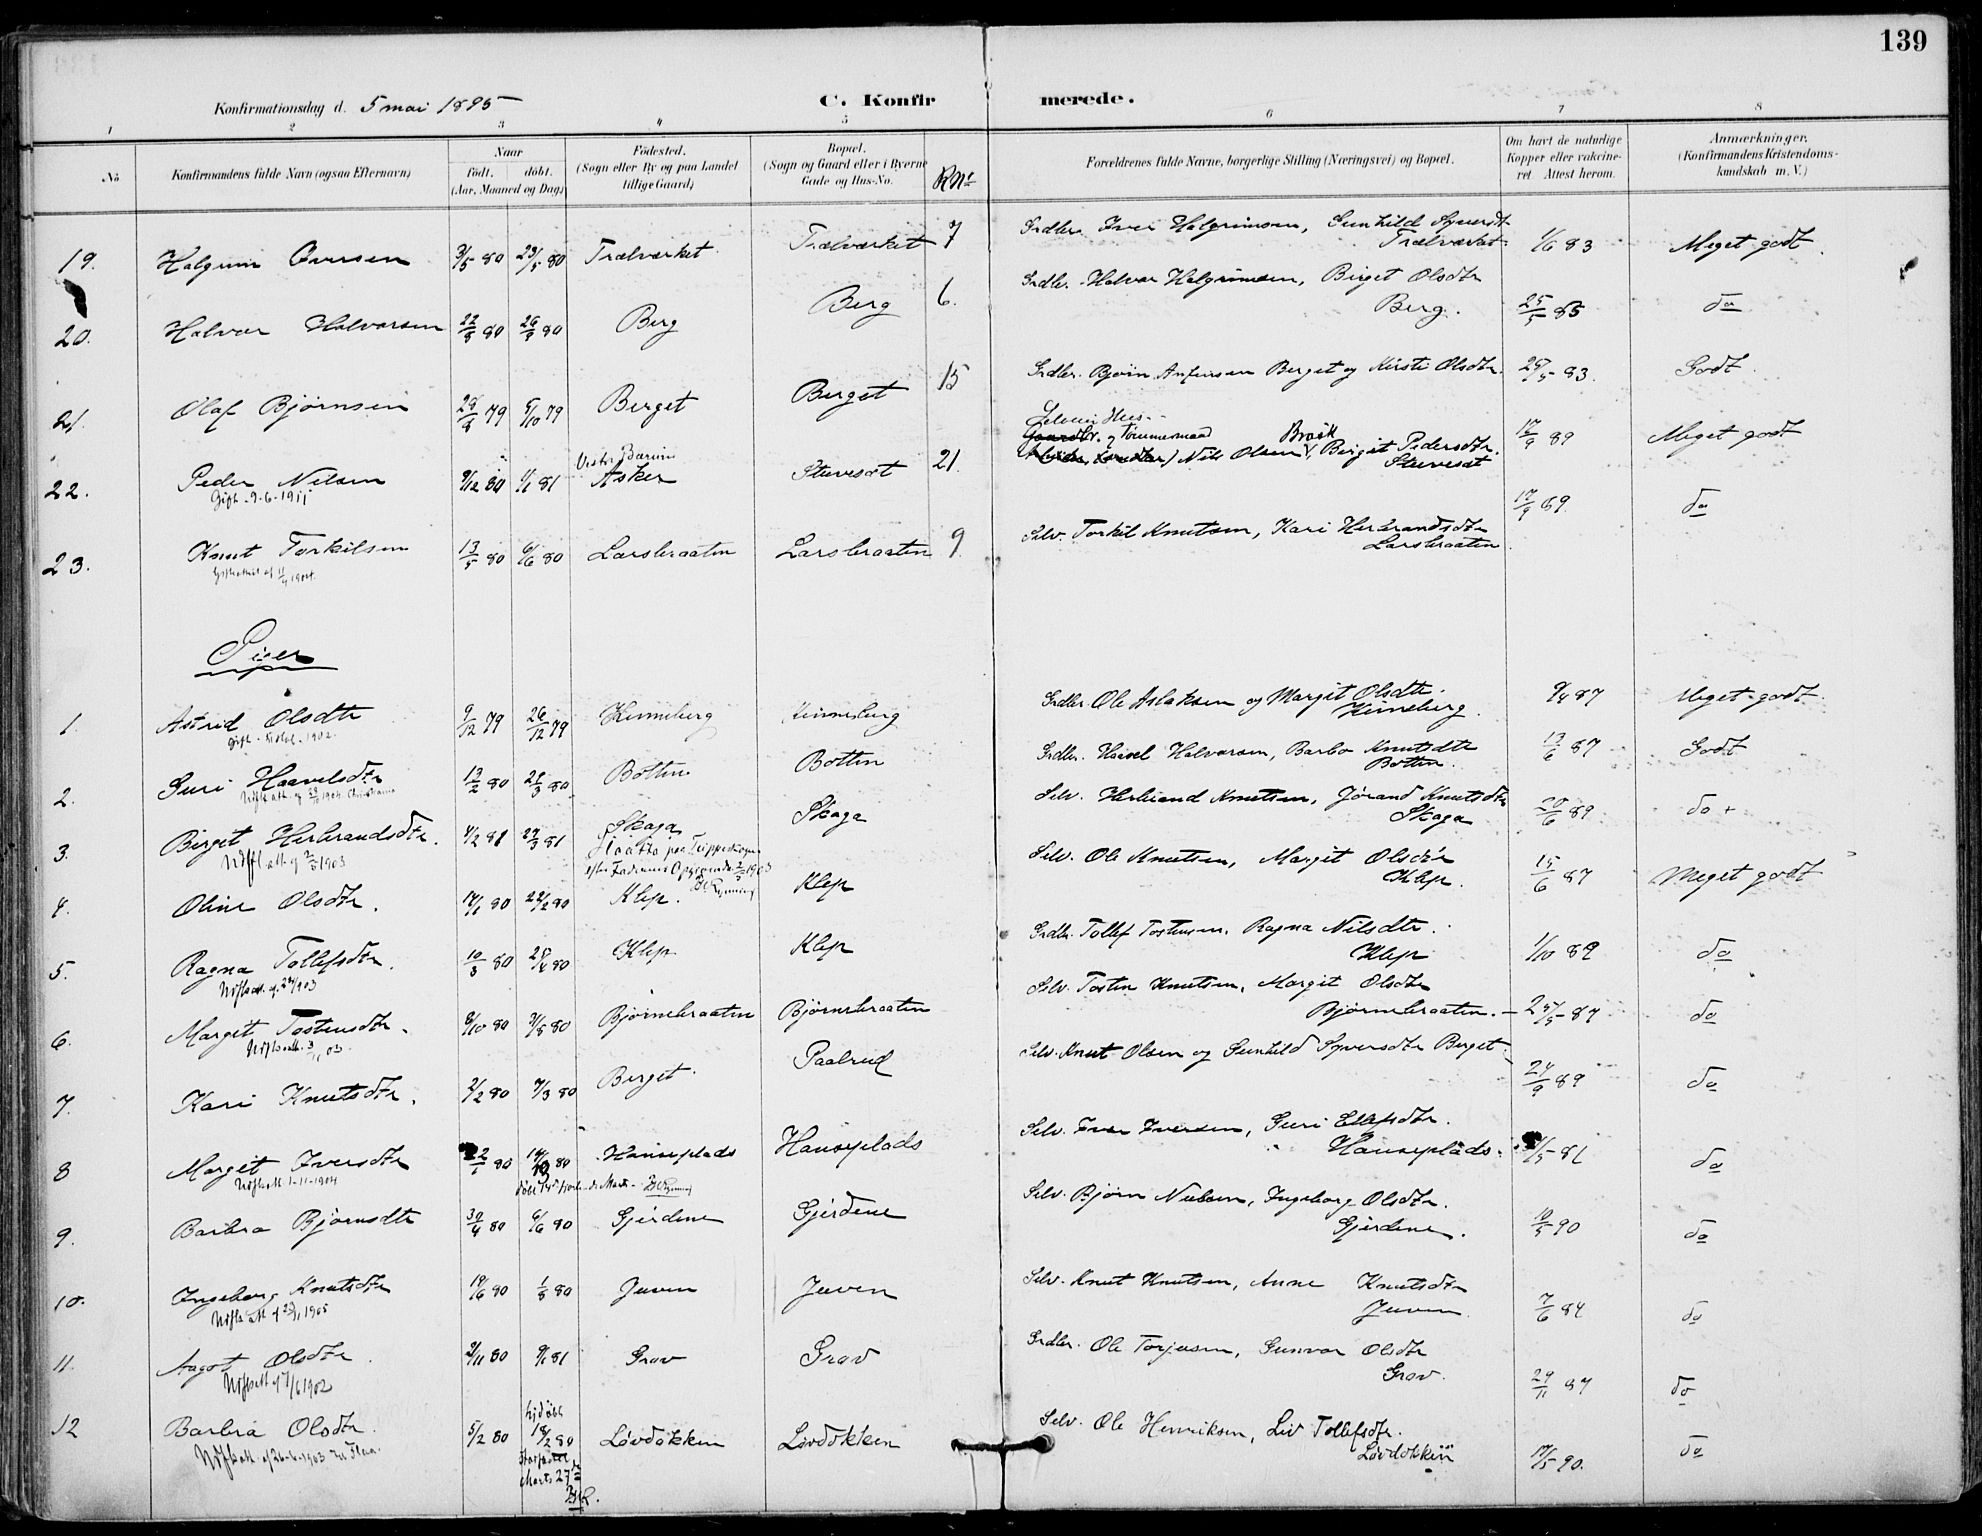 139
Konfirmationsdag d. 5 mai 1895
C. Konfirmerede.
1 2 3 4 5 6 7 8
No
Konfirmandens fulde Navn (ogsaa Efternavn)
Naar
født. døbt.
(Aar, Maaned og Dag)
Fødested.
(Sogn eller By og paa Landet
tillige Gaard)
Bopæl.
(Sogn og Gaard eller i Byerne
Gade og Hus-No.
R.Nr
Forældrenes fulde Navne, borgerlige Stilling (Næringsvei) og Bopæl.
Om havt de naturlige
Kopper eller vakcine-
ret Attest herom.
Anmærkninger.
(Konfirmandens Kristendoms-
kundskab m. V.)
19. Halgrim Iversen 3/5 80 23/5 80 Trælværket Trælværket 7 Grdbr. Iver Halgrimsen, Gunhild Syversdt
Trælværket 1/6 83 Meget godt.
20. Halvor Halvorsen 22/8 80 26/9 80 Berg Berg 6. Grdbr. Halvor Halgrimsen, Birget Olsdtr
Berg. 25/5 85 do
21. Olaf Bjørnsen 28/8 79 5/10 79 Berget Berget 15 Grdbr. Bjørn Anfinsen Berget og Kirsti Olsdtr. 25/5 83. Godt.
22. Peder Nilsen 9/12 80 1/1 81 Vestre Bærum
Asker Stuvesat 21. og Tømmermand
Nils Olsen Braak, Birgit Pedersdtr.
Stuvesat 12/9 89 Meget godt
Gift 9-6-1911
23. Knut Torkilsen 13/5 80 6/6 80 Larsbraaten Larsbraaten 9 Selv. Torkil Knutsen, Kari Herbrandsdtr
Larsbraaten 17/9 89. do
Piger
1. Astrid Olsdtr 9/12 79 26/12 79 Kinneberg Kinneberg Grdbr. Ole Aslaksen og Margit Olsdtr.
Kinneberg. 9/4 87 Meget godt.
2. Guri Haavelsdtr 13/2 80 29/3 80 Botten Botten Grdbr. Haavel Halvorsen, Barbo Knutsdtr
Botten. 13/6 87 Godt
3. Birget Herbrandsdtr. 4/2 81 27/3 81 Skaga Skaga Selv. Herbrand Knutsen, Jørand Knutsdtr
Skaga 20/6 89 do +
4. Oline Olsdtr. 14/1 80 22/2 80 Klep. Klep Selv. Ole Knutsen, Margit Olsdtr
Klep. 15/6 87 Meget godt
5. Ragna Tollefsdtr. 10/3 80 25/4 80 Klep Klep Grdbr. Tollef Tostensen, Ragna Nilsdtr.
Klep 1/10 89 do
6. Margit Tostensdtr. 8/10 80 Bjørnebraaten Bjørnebraaten Selv. Tosten Knutsen, Margit Olsdtr
Bjørnebraaten. 24/5 87 do
7. Kari Knutsdtr. 2/2 80 7/3 80 Berget. Paalrud Selv. Knut Olsen og Gunhild Syversdtr Berget. 24/9 89 do
8 Margit Iversdtr 22/1 80 Hauseplads Hauseplads Selv. Iver Iversen, Guri Ellefsdtr.
Hauseplads. do
1-11-1904
9. Barbra Bjørnsdtr 30/4 80 6/6 80 Gjerdene Gjerdene Selv. Bjørn Nielsen, Ingeborg Olsdtr.
Gjerdene. 10/5 90 do
10. Ingeborg Knutsdtr 19/6 80 1/8 80 Juven Juven Selv. Knut Knutsen, Anne Knutsdtr
Juven 7/6 84 do
11. Aagot Olsdtr. 2/11 80 9/1 81 Grav Grav Grdbr. Ole Torjusen, Gunvor Olsdtr
Grav. 29/11 87 do
12 Barbra Olsdtr. 5/2 80 hjdøbt
18/2 80 Løvdokken Løvdokken Selv. Ole Henriksen, Liv Tollefsdtr.
Løvdokken 17/5 90. do
Marts 27